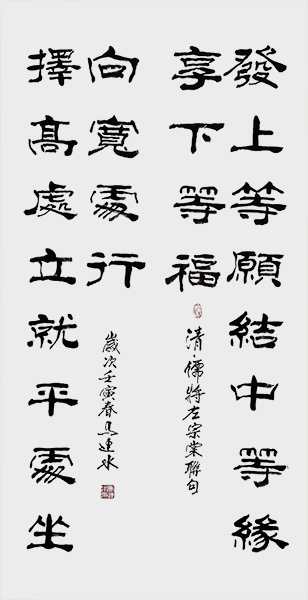 發上等願結中等緣
享下等福
清儒將左宗棠聯句
擇髙處立就平處坐
向寬處行
歲次壬寅春馬連水